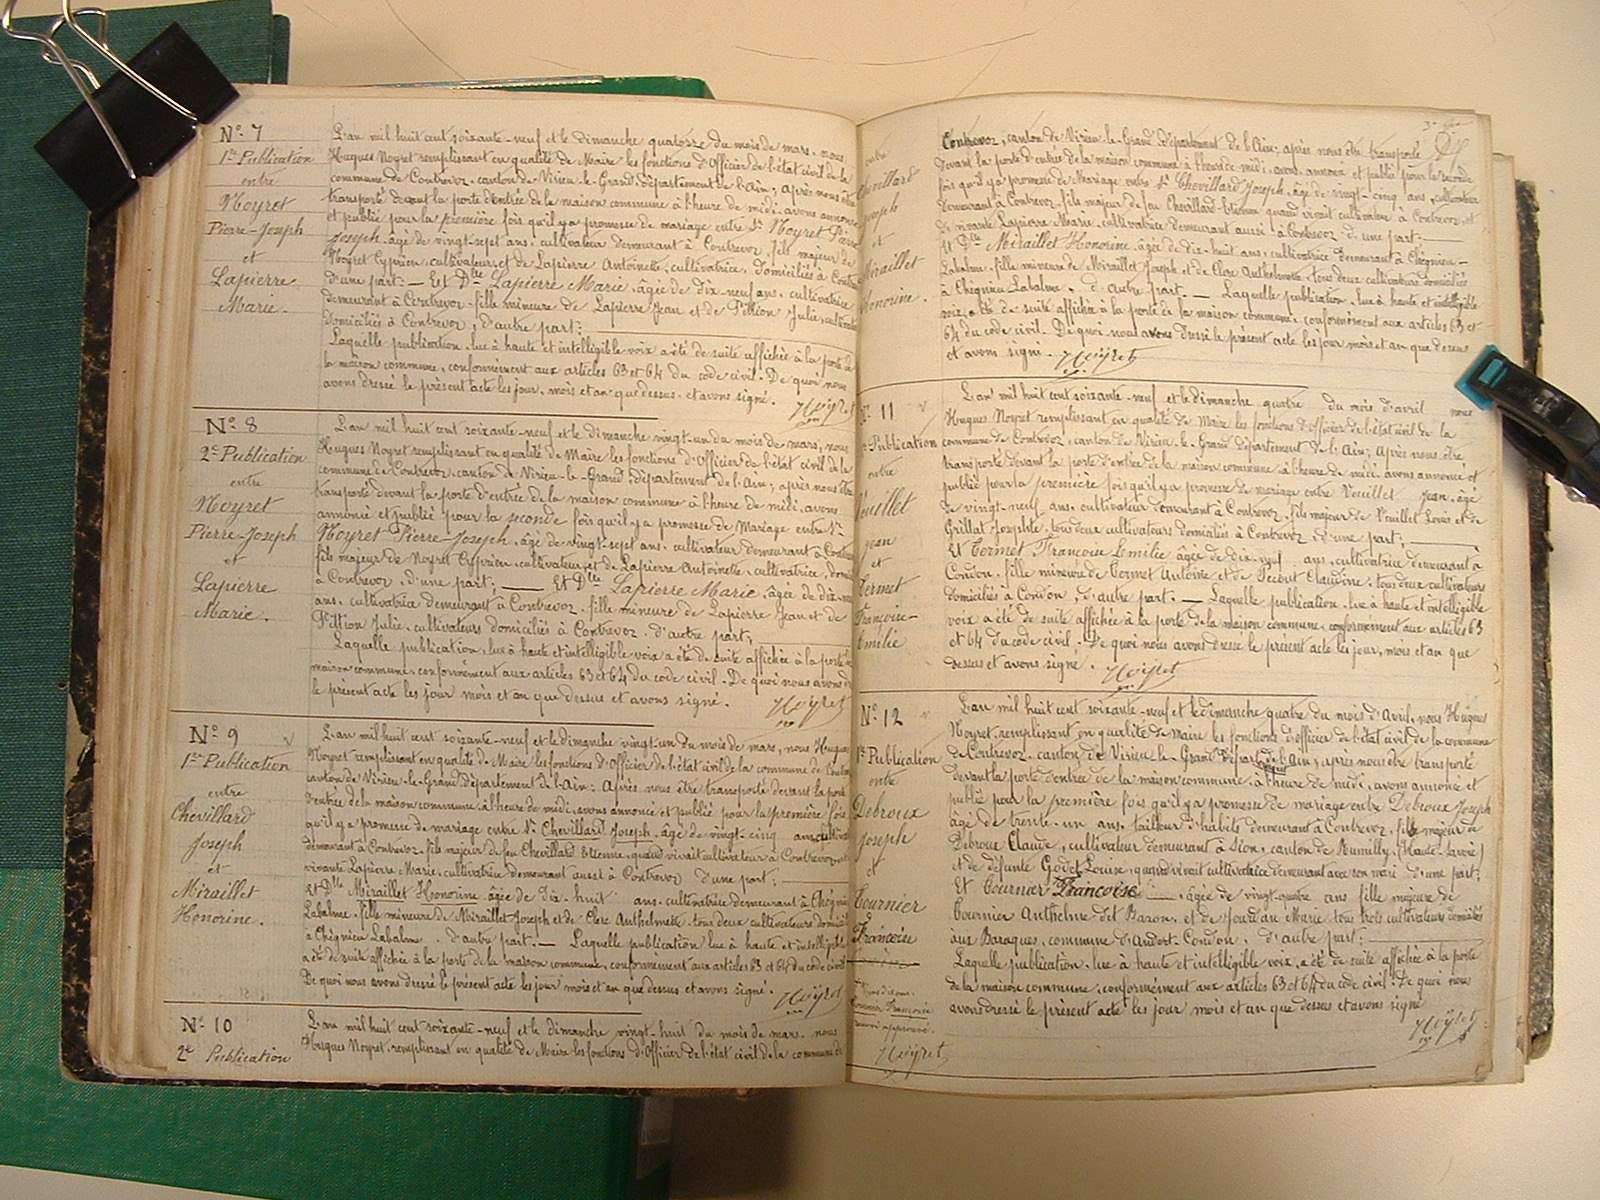 N° 7
1re Publication
entre
Noyret
Pierre-Joseph
et
Lapierre
Marie.
L'an mil huit cent soixante-neuf et le dimanche quatorze du mois de mars, nous
Hugues Noyret remplissant en qualité de Maire les fonctions d'Officier de l'état civil de la
commune de Contrevoz, canton de Virieu-le-Grand, département de l'Ain; Après nous être
transporté devant la porte d'entrée de la maison commune à l'heure de midi, avons annoncé
et publié pour la première fois qu'il y a promesse de mariage entre Sr Noyret Pierre
Joseph, âgé de vingt-sept ans, cultivateur demeurant à Contrevoz, fils majeur de
Noyret Cyprien, cultivateur, et de Lapierre Antoinette, cultivatrice, domiciliés à Contre
d'une part; — Et Dlle Lapierre Marie, âgée de dix-neuf ans, cultivatrice
demeurant à Contrevoz, fille mineure de Lapierre Jean et de Pittion Julie, cultivate
domiciliés à Contrevoz, d'autre part;
Laquelle publication, lue à haute et intelligible voix a été de suite affichée à la porte de
la maison commune, conformément aux articles 63 et 64 du code civil. De quoi nous
avons dressé le présent acte les jour, mois et an que dessus et avons signé.
Noyret
N° 8
2e Publication
entre
Noyret
Pierre-Joseph
et
Lapierre
Marie.
L'an mil huit cent soixante-neuf et le dimanche vingt-un du mois de mars, nous
Hugues Noyret remplissant en qualité de Maire les fonctions d'Officier de l'état civil de la
commune de Contrevoz, canton de Virieu-le-Grand, département de l'Ain; après nous être
transporté devant la porte d'entrée de la maison commune à l'heure de midi, avons
annoncé et publié pour la seconde fois qu'il y a promesse de Mariage entre Sr
Noyret Pierre-Joseph, âgé de vingt-sept ans, cultivateur demeurant à Contrev
fils majeur de Noyret Cyprien, cultivateur, et de Lapierre Antoinette, cultivatrice, domic
à Contrevoz, d'une part; — Et Dlle Lapierre Marie, âgée de dix-neuf
ans, cultivatrice demeurant à Contrevoz, fille mineure de Lapierre Jean et de
Pittion Julie, cultivateurs domiciliés à Contrevoz, d'autre part;
Laquelle publication, lue à haute et intelligible voix a été de suite affichée à la porte
maison commune, conformément aux articles 63 et 64 du code civil. De quoi nous avons
le présent acte les jour mois et an que dessus et avons signé.
Noyret
N° 9
1re Publication
entre
Chevillard
Joseph
et
Miraillet
Honorine.
L'an mil huit cent soixante-neuf et le dimanche vingt-un du mois de mars, nous Hugues
Noyret remplissant en qualité de Maire les fonctions d'Officier de l'état civil de la commune de Contrev
canton de Virieu-le-Grand, département de l'Ain; Après nous être transporté devant la porte
d'entrée de la maison commune, à l'heure de midi, avons annoncé et publié pour la première fois
qu'il y a promesse de mariage entre Sr Chevillard Joseph, âgé de vingt-cinq ans, cultivat
demeurant à Contrevoz, fils majeur de feu Chevillard Etienne, quand vivait cultivateur à Contrevoz, et
vivante Lapierre Marie, cultivatrice demeurant aussi à Contrevoz d'une part;
Et Dlle Miraillet Honorine âgée de dix-huit ans, cultivatrice demeurant à Chégnieu
Labalme, fille mineure de Miraillet Joseph et de Clerc Anthelmette, tous deux cultivateurs domicil
à Chégnieu Labalme, d'autre part. — Laquelle publication lue à haute et intelligible
a été de suite affichée à la porte de la maison commune, conformément aux articles 63 et 64 du code civil
De quoi nous avons dressé le présent acte les jour mois et an que dessus et avons signé.
Noyret
N° 10
2e Publication
L'an mil huit cent soixante-neuf et le dimanche vingt-huit du mois de mars, nous
Hugues Noyret, remplissant en qualité de Maire les fonctions d'Officier de l'état civil de la commune de
entre
Chevillard
Joseph
et
Miraillet
Honorine.
Contrevoz, canton de Virieu-le-Grand, département de l'Ain; après nous être transporté
devant la porte d'entrée de la maison commune à l'heure de midi, avons annoncé et publié pour la seconde
fois qu'il y a promesse de Mariage entre Sr Chevillard Joseph, âgé de vingt-cinq ans, cultivateur
demeurant à Contrevoz, fils majeur de feu Chevillard Etienne quand vivait cultivateur à Contrevoz, et
de vivante Lapierre Marie, cultivatrice demeurant aussi à Contrevoz d'une part;
Et Dlle Miraillet Honorine, âgée de dix-huit ans, cultivatrice demeurant à Chégnieu-
Labalme, fille mineure de Miraillet Joseph et de Clerc Anthelmette, tous deux cultivateurs domiciliés
à Chégnieu Labalme, d'autre part. — Laquelle publication, lue à haute et intelligible
voix, a été de suite affichée à la porte de la maison commune, conformément aux articles 63 et
64 du code civil. De quoi nous avons dressé le présent acte les jour mois et an que dessus
et avons signé. Noyret
N° 11
Publication
entre
Veuillet
Jean
et
Cormet
Françoise-
Emilie
L'an mil huit cent soixante-neuf et le dimanche quatre du mois d'avril nous
Hugues Noyret remplissant en qualité de Maire les fonctions d'Officier de l'état civil de la
commune de Contrevoz, canton de Virieu-le-Grand département de l'Ain; Après nous être
transporté devant la porte d'entrée de la maison commune, à l'heure de midi, avons annoncé et
publié pour la première fois qu'il y a promesse de mariage entre Veuillet Jean, âgé
de vingt-neuf ans, cultivateur demeurant à Contrevoz, fils majeur de Veuillet Louis et de
Grillat Josephte, tous deux cultivateurs domiciliés à Contrevoz d'une part;
Et Cormet Françoise Emilie âgée de dix-neuf ans, cultivatrice demeurant à
Condon, fille mineure de Cormet Antoine et de Claudine, tous deux cultivateurs
domiciliés à Condon, d'autre part. — Laquelle publication, lue à haute et intelligible
voix a été de suite affichée à la porte de la maison commune, conformément aux articles 63
et 64 du code civil. De quoi nous avons dressé le présent acte les jour, mois et an que
dessus et avons signé. Noyret
N° 12
1re Publication
entre
Debroux
Joseph
et
Cournier
Françoise
Cournier Françoise
approuvé.
Noyret
L'an mil huit cent soixante-neuf et le dimanche quatre du mois d'Avril, nous Hugues
Noyret, remplissant en qualité de Maire les fonctions d'officier de l'état civil de la commune
de Contrevoz, canton de Virieu-le-Grand, départ de l'Ain; après nous être transporté
devant la porte d'entrée de la maison commune, à l'heure de midi, avons annoncé et
publié pour la première fois qu'il y a promesse de mariage entre Debroux Joseph
âgé de trente-un ans, tailleur d'habits demeurant à Contrevoz, fils majeur de
Debroux Claude, cultivateur demeurant à Sion, canton de Rumilly, (Haute-Savoie)
et de défunte Godet Louise, quand vivait cultivatrice demeurant avec son mari d'une part;
Et Cournier Françoise — , âgée de vingt-quatre ans fille majeure de
Cournier Anthelme dit Baron, et de Jourdan Marie tous trois cultivateurs domiciliés
aux Baraques, commune d'Andert-Condon, d'autre part;
Laquelle publication, lue à haute et intelligible voix, a été de suite affichée à la porte
de la maison commune, conformément aux articles 63 et 64 du code civil. De quoi nous
avons dressé le présent acte les jour mois et an que dessus et avons signé
Noyret